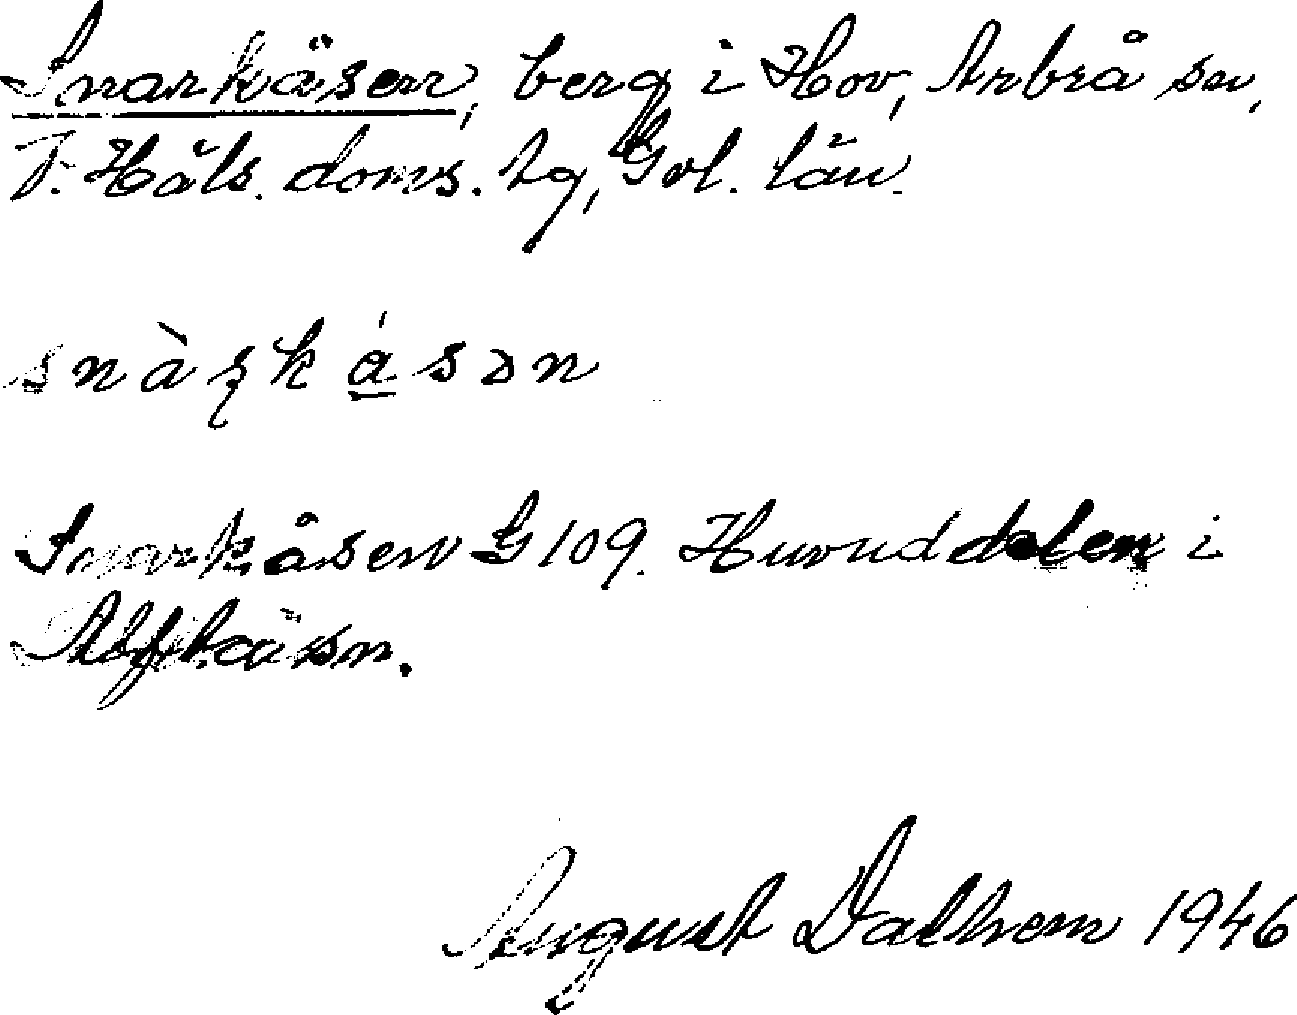 Snarkåsen, berg i Hov, Arbrå sn,
V. Häls. doms. tg, Gvl. län.
snàrkásən
Snarkåsen G 109. Huvuddelen i
August Dalhem 1946